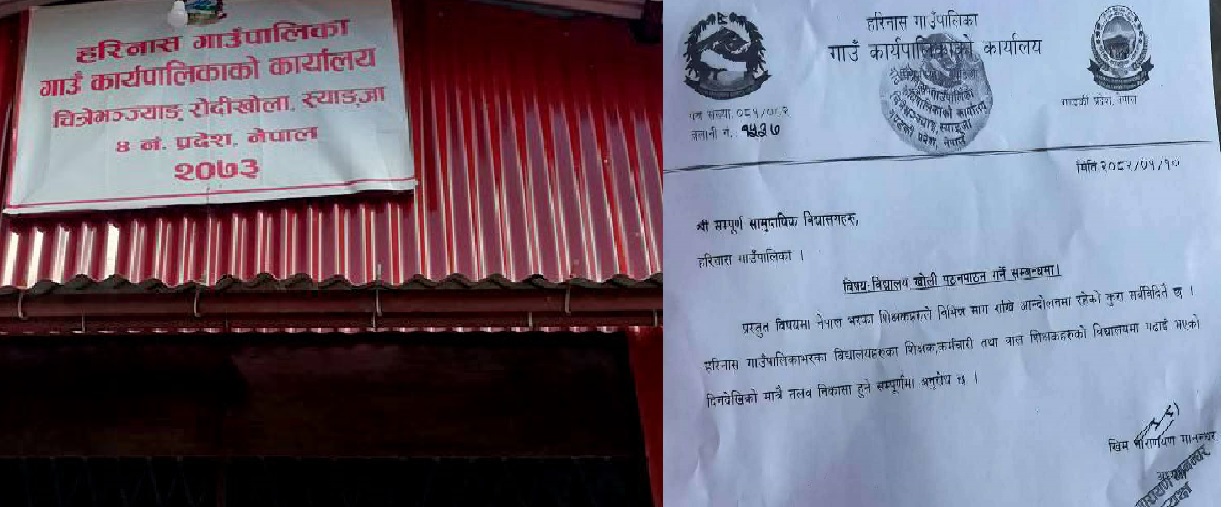 हरिनास गाउँपालिका
गाउँ कार्यपालिकाको कार्यालय
चित्रेभञ्ज्याङ्ग रोदीखोला, स्याङ्जा
४ नं. प्रदेश, नेपाल
२०७३
हरिनास गाउँपालिका
गाउँ कार्यपालिकाको कार्यालय
गण्डकी प्रदेश, नेपाल
चलानी नं.
मिति २०८०/०५/१०
श्री सम्पूर्ण सामुदायिक विद्यालयहरू,
हरिनास गाउँपालिका ।
विषय: विद्यालय खोली पठनपाठन गर्ने सम्बन्धमा।
प्रस्तुत विषयमा नेपाल भरका शिक्षकहरूले विभिन्न माग राखि आन्दोलनमा रहेको कुरा सर्वविदितै छ ।
हरिनास गाउँपालिकाभरका विद्यालयहरूका शिक्षक,कर्मचारी तथा बाल शिक्षकहरूको विद्यालयमा पढाई भएको
दिनदेखिको मात्रै तलव निकासा हुने सम्पूर्णमा अनुरोध छ ।
खिम नारायण मानन्धर